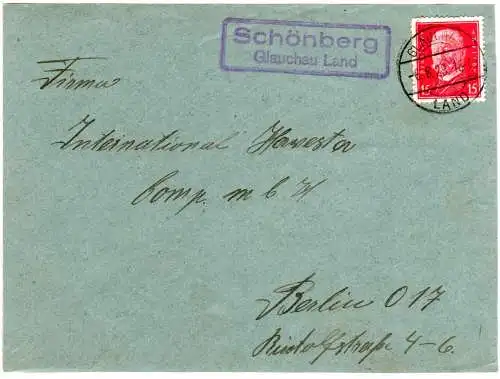 Schönberg
Glauchau Land
15
LAND
Firma
International Harvester
Comp. m b H
Berlin O 17
Rudolfstraße 4-6.